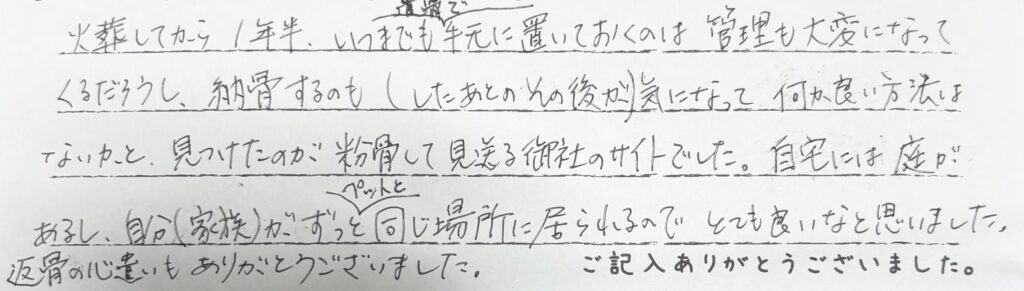 遺骨で
火葬してから1年半、いつまでも手元に置いておくのは管理も大変になって
くるだろうし、納骨するのも(したあとのその後が)気になって何か良い方法は
ないかと、見つけたのが粉骨して見送る御社のサイトでした。自宅には庭が
ペットと
あるし、自分(家族)がずっと同じ場所に居られるのでとても良いなと思いました。
返骨の心遣いもありがとうございました。 ご記入ありがとうございました。